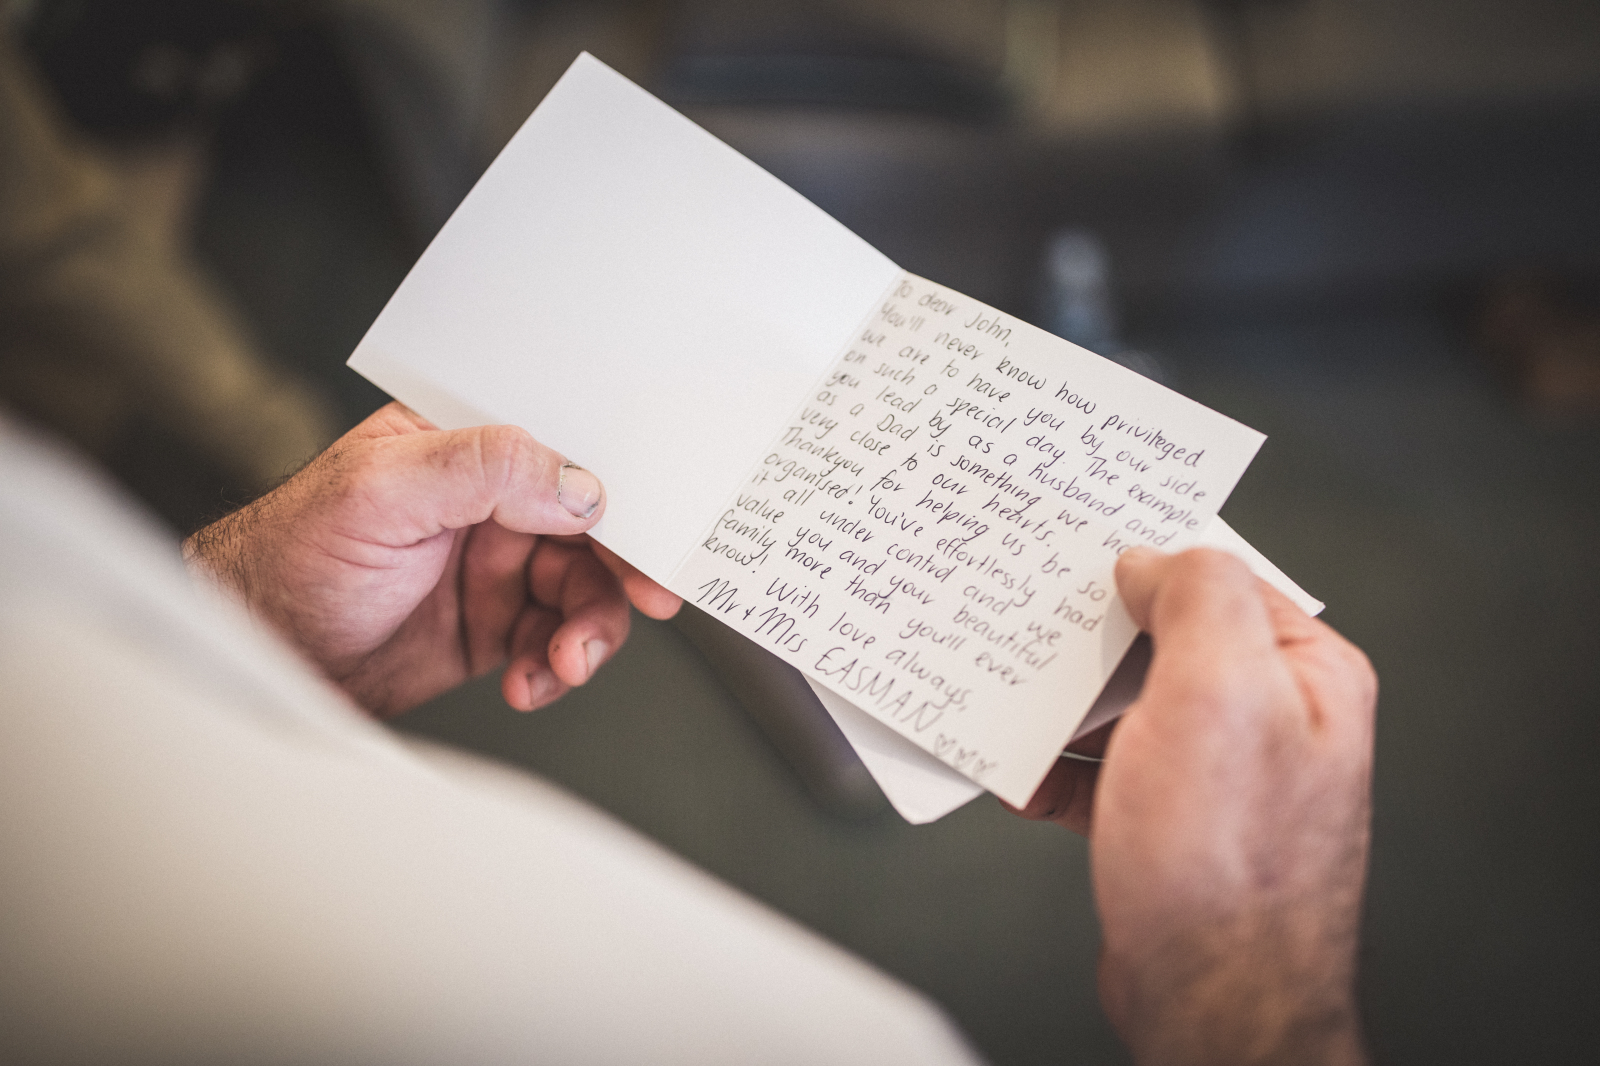 To dear John,
You'll never know how privileged
we are to have you by our side
on such a special day. The example
you lead by as a husband and
as a Dad is something we
very close to our hearts.
Thankyou for helping us be so
organised! You've effortlessly had
it all under control and we
value you and your beautiful
family more than you'll ever
know!
With love always,
Mr & Mrs EASMAN